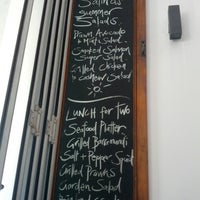 Summer
Salads
Prawn, Avocado
+ Mint Salad
Smoked Salmon
Super Salad
Grilled Chicken
+ Cashew Salad
LUNCH for TWO
Seafood Platter
Grilled Barramundi
Salt + Pepper Squid
Grilled Prawns
Garden Salad